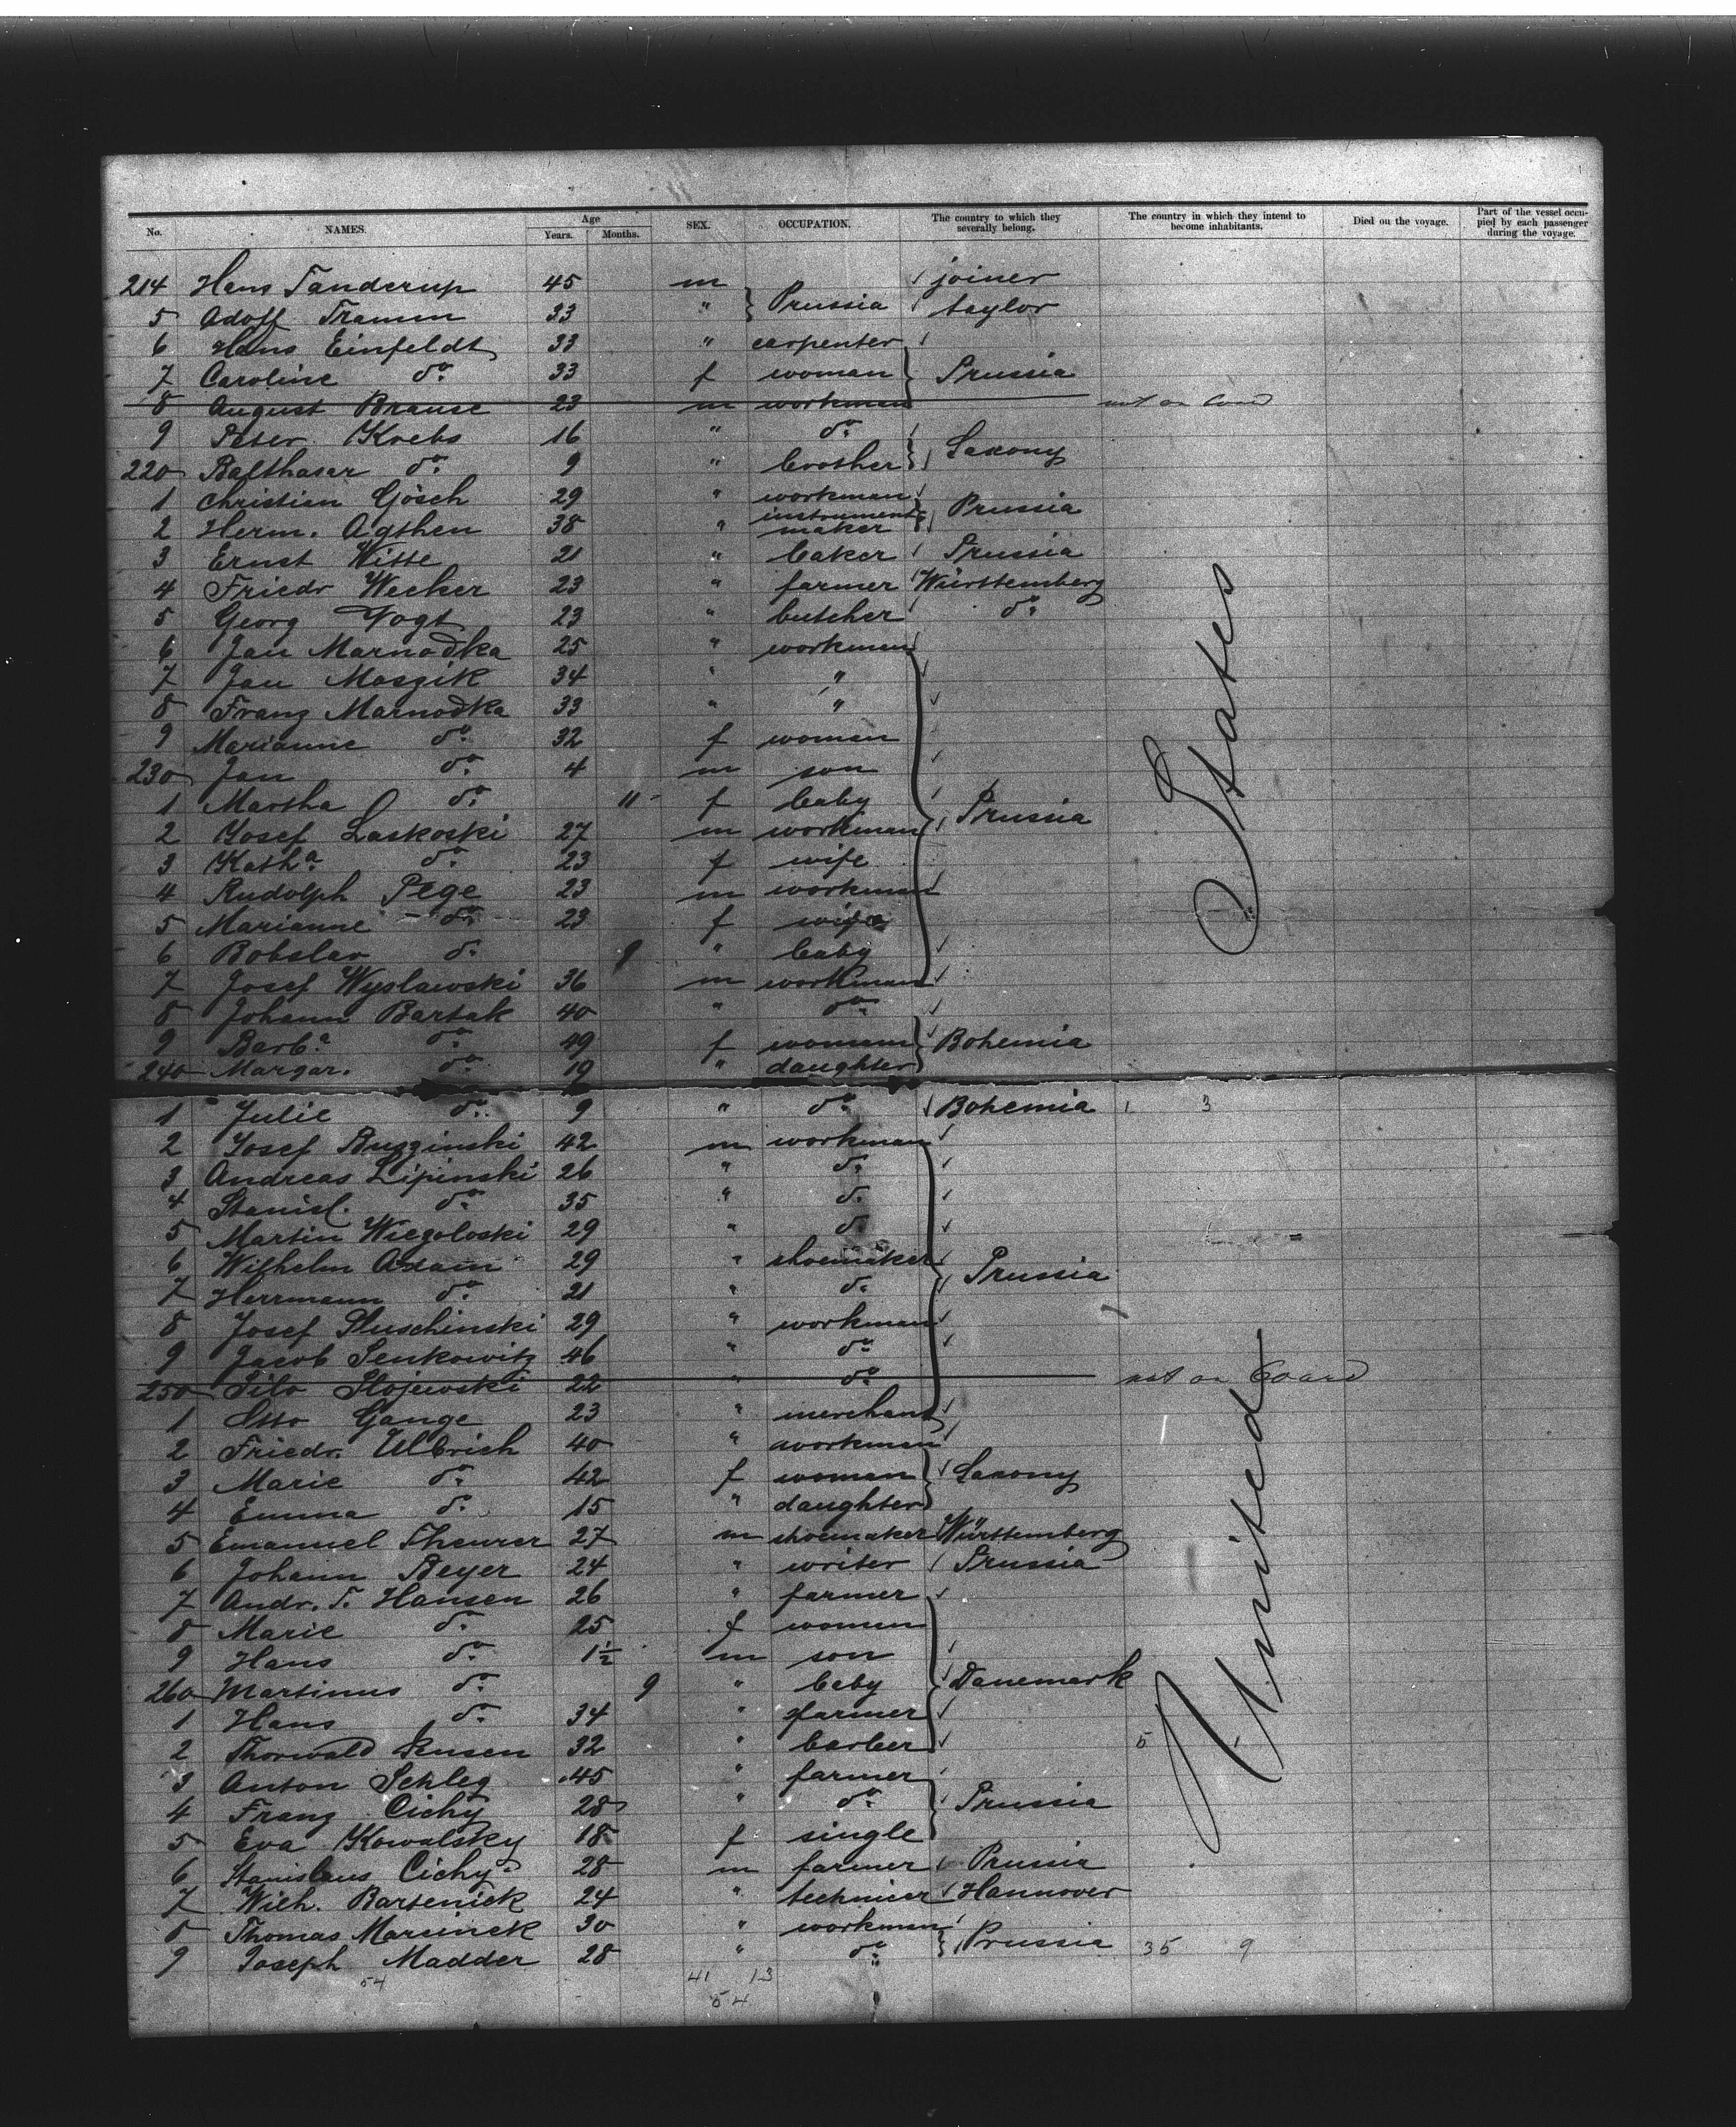 No. NAMES. Age Years. Months. SEX. OCCUPATION. The country to which they severally belong. The country in which they intend to become inhabitants. Died on the voyage. Part of the vessel occupied by each passenger during the voyage.
214 Hans Tanderup 45 m joiner
5 Adolf Tramm 33 " } Prussia taylor
6 Hans Einfeldt 33 " carpenter
7 Caroline do. 33 f woman } Prussia
8 August Brause 23 m workman not on board
9 Peter Krebs 16 " do.
220 Balthasar do. 9 " brother } Saxony
1 Christian Gösch 29 " workman
2 Herm. Agthen 38 " instrument maker } Prussia
3 Ernst Witte 21 " baker Prussia
4 Friedr Wecker 23 " farmer Württemberg
5 Georg Vogt 23 " butcher do.
6 Jan Marnodka 25 " workman
7 Jan Maszik 34 " "
8 Franz Marnodka 33 " "
9 Marianne do. 32 f woman
230 Jan do. 4 m son
1 Martha do. 11 f baby Prussia
2 Josef Laskoski 27 m workman
3 Katha. do. 23 f wife
4 Rudolph Pege 23 m workman
5 Marianne do. 23 f wife
6 Bobslav do. " baby
7 Josef Wyslawski 36 m workman
8 Johann Bartak 40 " do.
9 Barba. do. 49 f woman } Bohemia
240 Margar. do. 19 " daughter
1 Julie do. 9 " do. Bohemia 1 3
2 Josef Buzzinski 42 m workman
3 Andreas Lipinski 26 " do.
4 Stanisl. do. 35 " do.
5 Martin Wiegoloski 29 " do.
6 Wilhelm Adam 29 " shoemaker Prussia
7 Herrmann do. 21 " do.
8 Josef Pluschinski 29 " workman
9 Jacob Senkowitz 46 " do.
250 Silo Slojewski 22 " do. not on board
1 Otto Gange 23 " merchant
2 Friedr. Ulbrich 40 " workman
3 Marie do. 42 f woman } Saxony
4 Emma do. 15 " daughter
5 Emanuel Theurer 27 m shoemaker Württemberg
6 Johann Beyer 24 " writer Prussia
7 Andr. T. Hansen 26 " farmer
8 Marie do. 25 f women
9 Hans do. 1½ m son
260 Martinus do. 9 " baby Danemark
1 Hans do. 34 " farmer
2 Thorwald 32 " barber 5
3 Anton Schleg 45 " farmer
4 Franz Cichy 28 " do. } Prussia
5 Eva Kowalsky 18 f single
6 Stanislaus Cichy 28 m farmer Prussia
7 Wich. Bartenick 24 " technicer Hannover
8 Thomas Marcinek 30 " workman
9 Joseph Madder 28 " do. } Prussia 35 9
54 41 13
54
United States